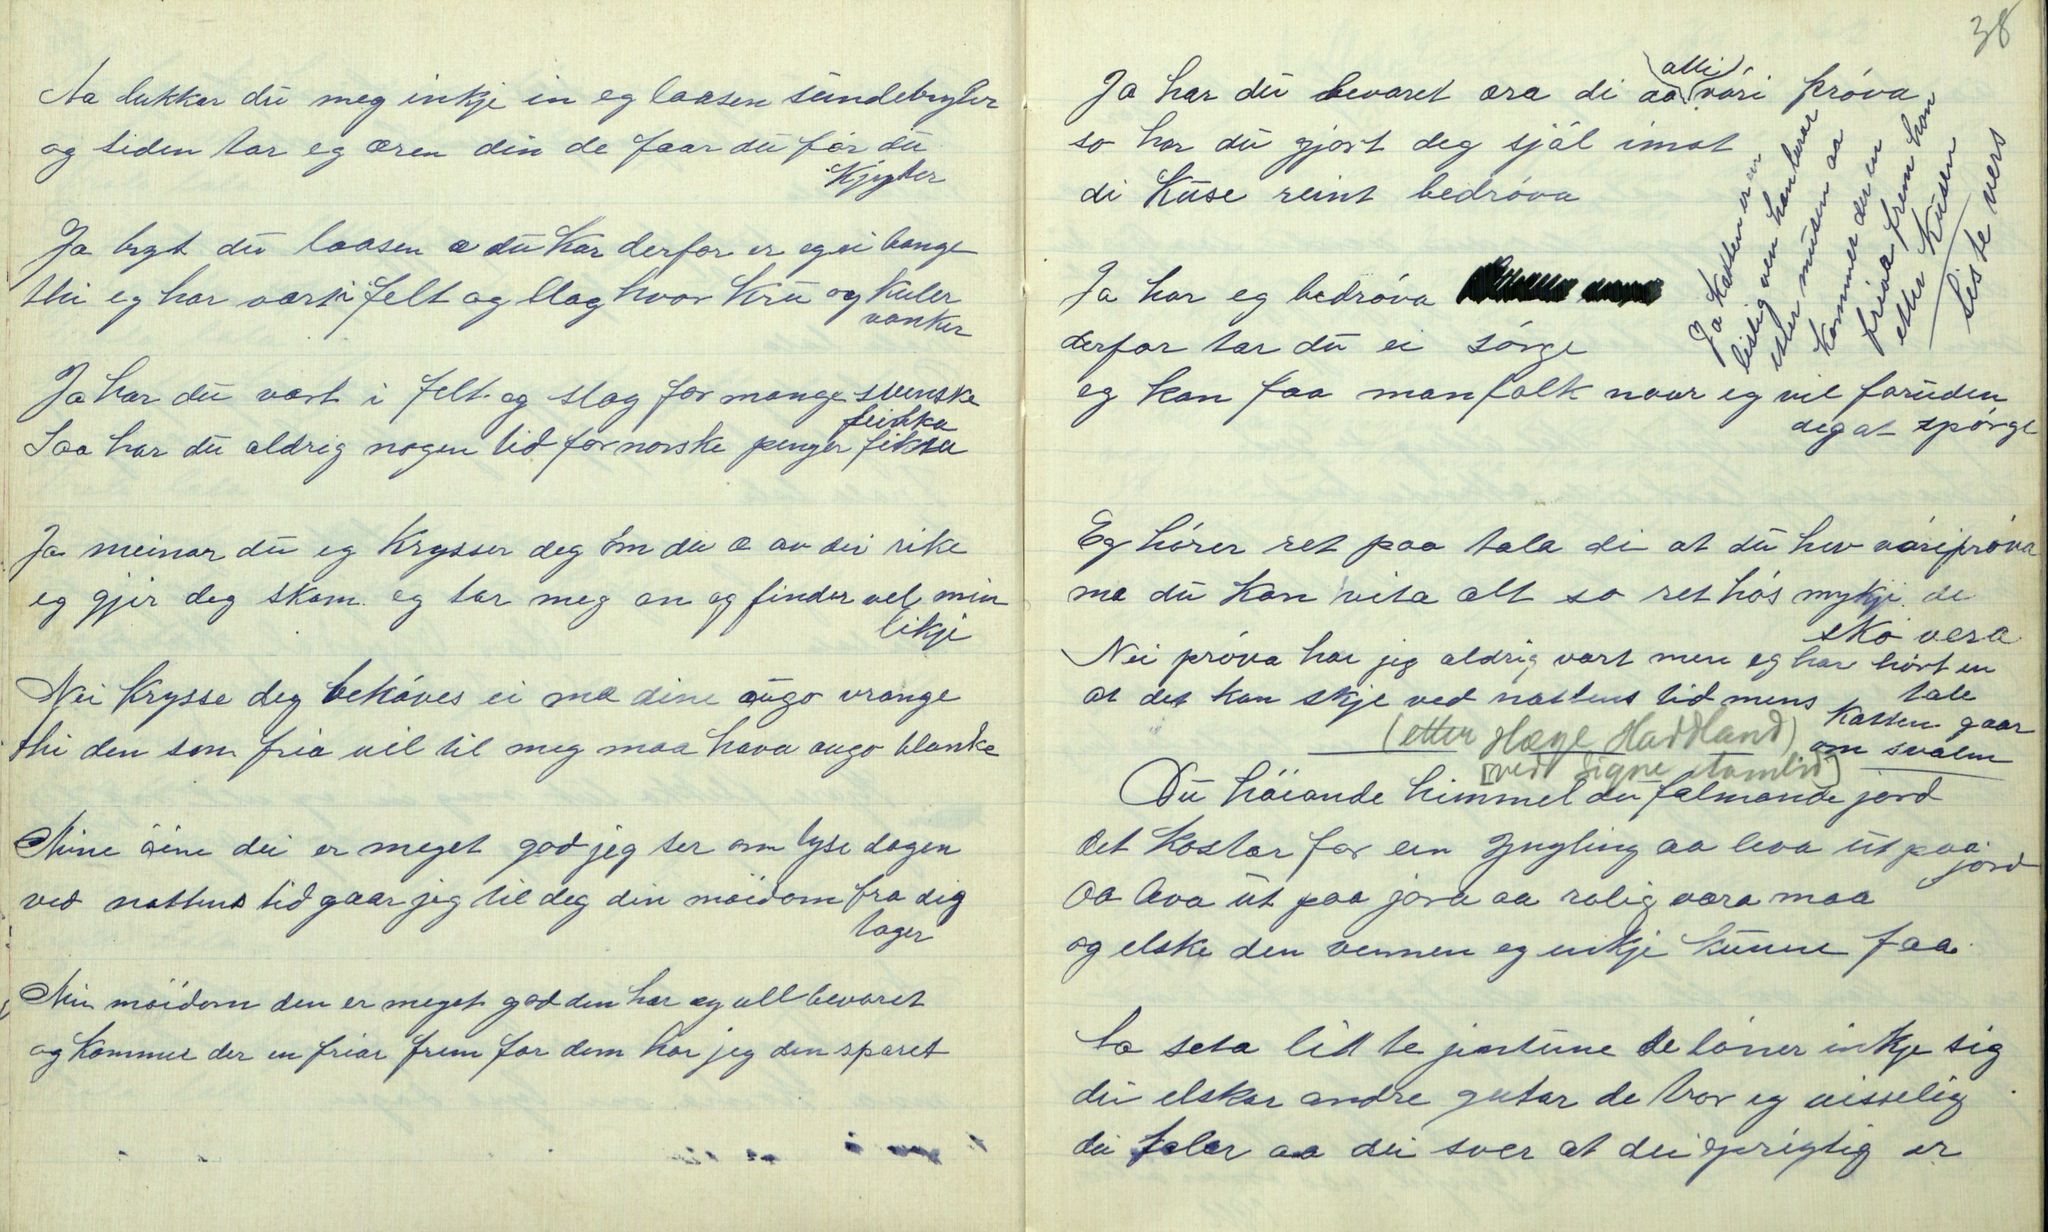 Aa lukkar du meg inkje in eg laasen sundebryter
og siden tar eg æren din de faar du før du
kjyter
Ja bryt du laasen æ du kar derfor er eg ei bange
thi eg har vært i felt og slag hvor kru og kuler
vanker
Ja har du vært i felt og slag for mange svenske
feikka
Saa har du aldrig nogen tid for norske penger
Ja meinar du eg krysser deg óm du æ av dei rike
eg gjir deg skam eg tar meg en og finder vel min
likje
Nei krysse deg behøves ei mæ dine augo vrange
thi den som fria vil til meg maa hava augo blanke
Mine øine dei er meget god jeg ser om lyse dagen
ved nattens tid gaar jeg til deg din møidom fra dig
tager
Min møidom den er meget god den har eg vell bevaret
og kommer der en friar frem for dem har jeg den sparet
38
Ja har du bevaret æra di aa alli vóri próva
so har du gjort deg sjæl imot
di kuse reint bedróva
Ja har eg bedróva
derfor tar du ei sórge
eg kan faa manfolk naar eg vil foruden
deg at spórge
Ja katten er en
listig ven han lurar
etter musem aa
kommer der en
friar frem han
etter kusen
Siste vers
Eg hórer ret paa tala di at du hev vóri i próva
mæ du kan vita alt so ret hós mykje de
sko vera
Nei próva har jeg aldrig vært men eg har hórt en
tale
at det kan skje ved nattens tid mens katten gaar
om svalen
(etter Hæge Haddland)
[ved Signe Tomlid]
Du hóiande himmel du falmande jord
det kostar for ein yngling aa leva ut paa
jord
aa leva ut paa jora aa rolig være maa
og elske den vennen eg inkje kunne faa.
Ja seta lit te jentune de lóner inkje sig
dei elskar andre gutar de tror eg visselig
dei falar aa dei svær at dei oprigtig er